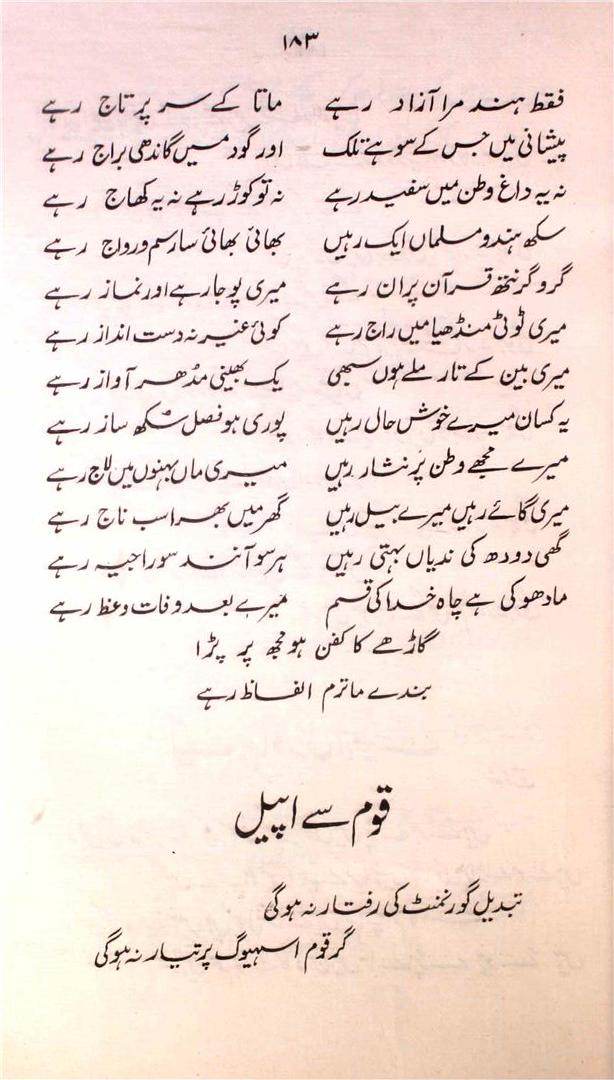 ۱۸۳
فقط ہند مرا آزاد رہے ماتا کے سر پر تاج رہے
پیشانی میں جس کے سوہے تلک اور گود میں گاندھی براج رہے
نہ یہ داغ وطن میں سفید رہے نہ تو کوڑ رہے نہ یہ کھاج رہے
سکھ ہندو مسلماں ایک رہیں بھائی بھائی سا رسم و رواج رہے
گرو گرنتھ قرآن پران رہے میری پوجا رہے اور نماز رہے
میری ٹوٹی منڈھیا میں راج رہے کوئی غیر نہ دست انداز رہے
میری بین کے تار ملے ہوں سبھی یک بھینی مدُھر آواز رہے
یہ کسان میرے خوش حال رہیں پوری ہو فصل سُکھ ساز رہے
میرے مجھے وطن پَر نثار رہیں میری ماں بہنوں میں لاج رہے
میری گائے رہیں میرے بیل رہیں گھر میں بھرا سب ناج رہے
گھی دودھ کی ندیاں بہتی رہیں ہرسو آنند سوراجیہ رہے
مادھو کی ہے چاہ خدا کی قسم میرے بعد وفات وعظ رہے
گاڑھے کا کفن ہو مجھ پر پڑا
بندے ماترم الفاظ رہے
قوم سے اپیل
تبدیل گورنمنٹ کی رفتار نہ ہوگی
گر قوم اسہیوگ پر تیار نہ ہوگی